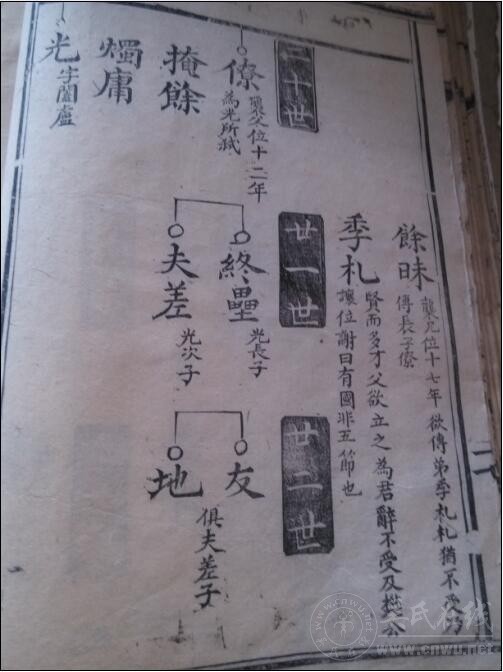 餘昧
襲兄位十七年欲傳弟季札札猶不受乃
傳長子僚
季札
賢而多才父欲立之為君辭不受及樊公
讓位謝曰有國非五節也
二十世
僚
襲父位十二年
為光所弒
掩餘
燭庸
光
字闔廬
廿一世
終壘
光長子
夫差
光次子
廿二世
友
地
俱夫差子
氏在线
www.cnwu.net